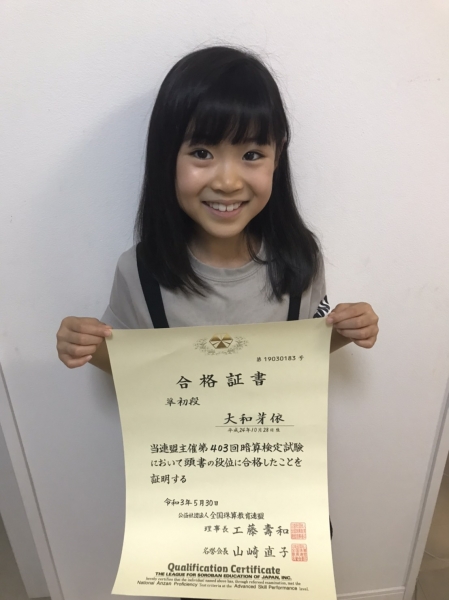 第 19030183 号
合格証書
準初段
大和芽依
平成24年10月28日生
当連盟主催第403回暗算検定試験
において頭書の段位に合格したことを
証明する
令和3年5月30日
公益社団法人 全国珠算教育連盟
理事長 工藤壽和
名誉会長 山崎直子
Qualification Certificate
THE LEAGUE FOR SOROBAN EDUCATION OF JAPAN, INC.
hereby certifies that the individual named above has
National Anzan Proficiency Advanced Skill Performance